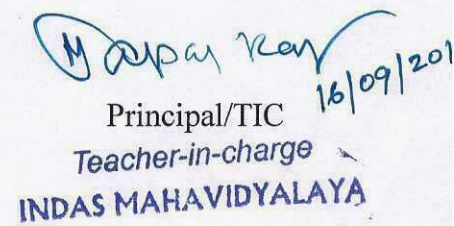 16/09/201
Principal/TIC
Teacher-in-charge
INDAS MAHAVIDYALAYA